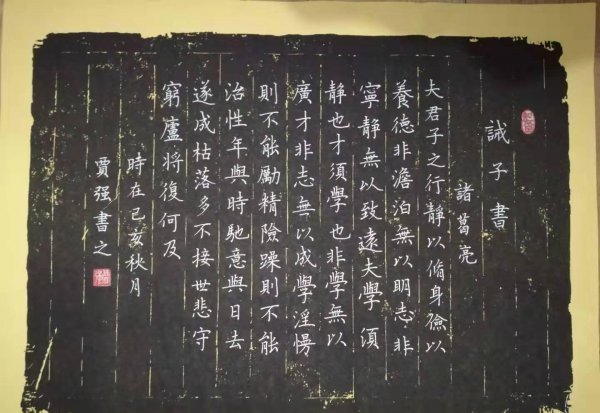 誡子書
諸葛亮
夫君子之行靜以脩身儉以
養德非澹泊無以明志非
寧靜無以致遠夫學須
靜也才須學也非學無以
廣才非志無以成學淫慢
則不能勵精險躁則不能
治性年與時馳意與日去
遂成枯落多不接世悲守
窮廬將復何及
時在己亥秋月
賈强書之